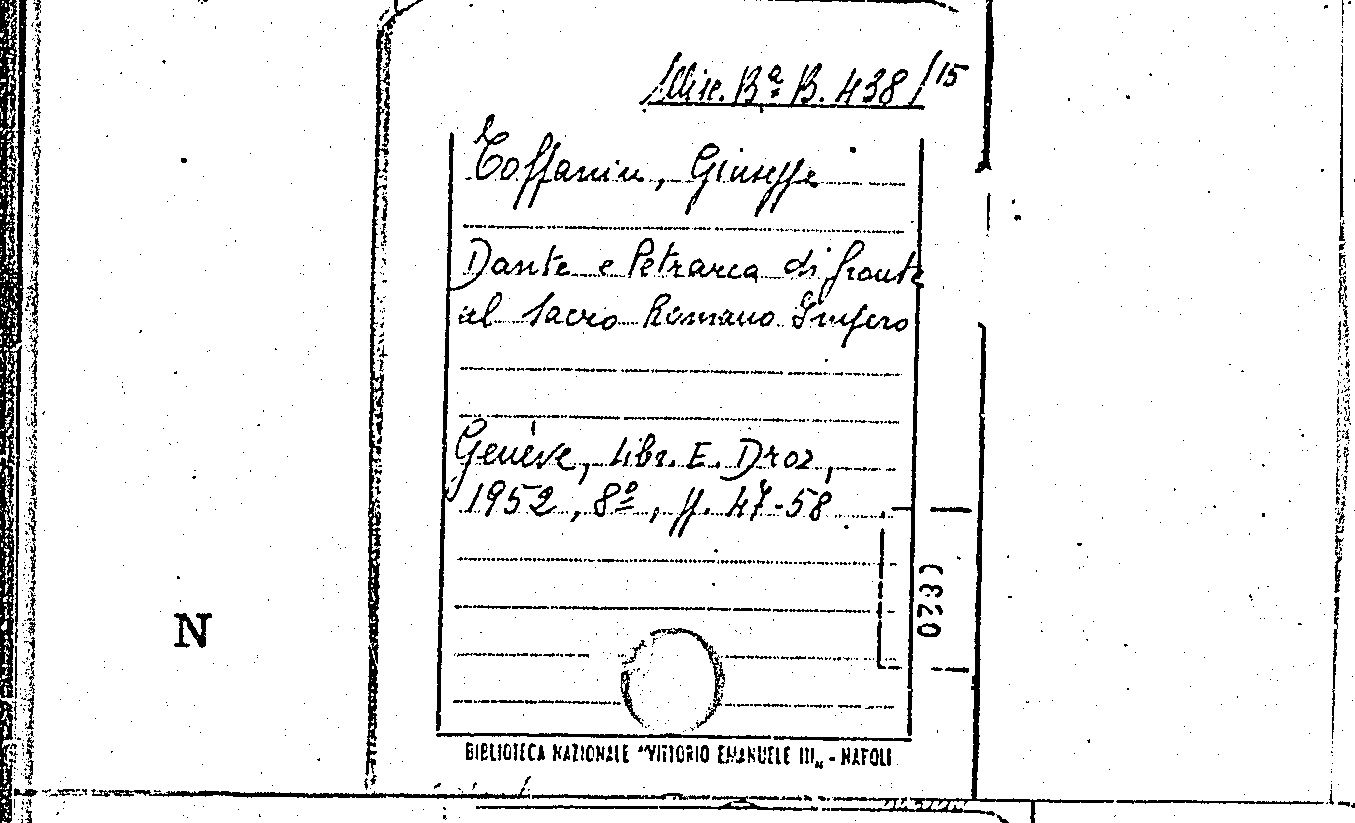 Misc. Bª B. 438/15
Toffanin, Giuseppe
Dante e Petrarca di fronte
al Sacro Romano Impero
Genève, Libr. E. Droz,
1952, 8º, pp. 47-58
N
BIBLIOTECA NAZIONALE "VITTORIO EMANUELE III„ - NAPOLI